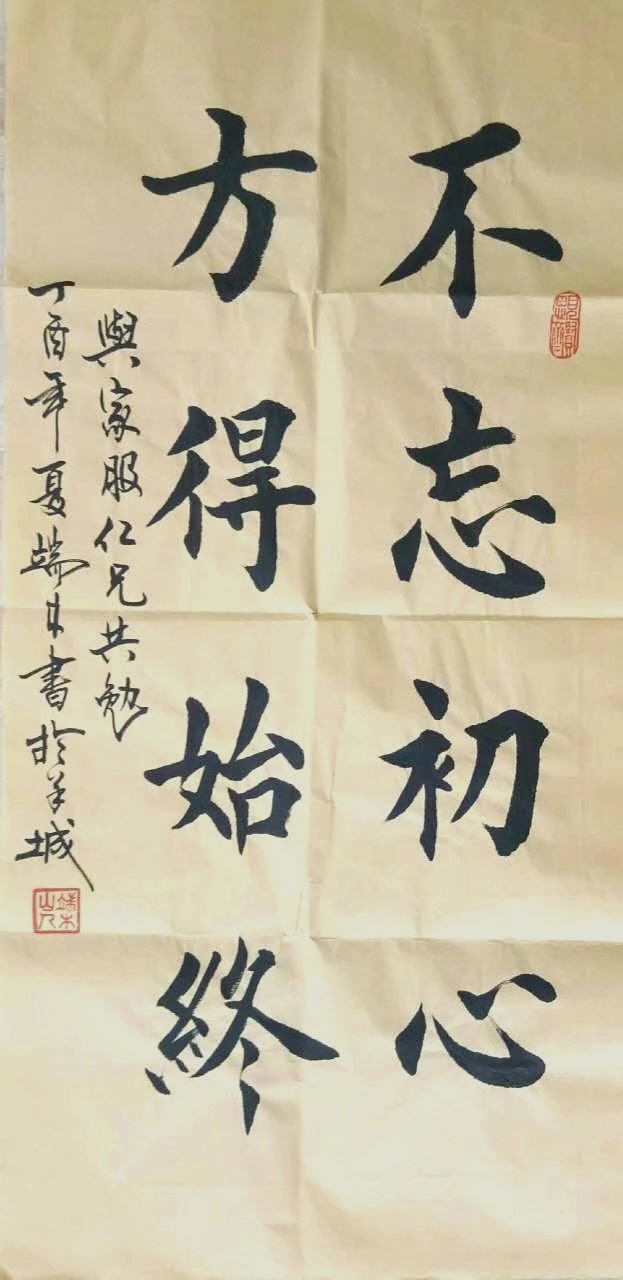 不忘初心
方得始終
與家服仁兄共勉
丁酉年夏端木書於羊城
見賢思齊
端木山人